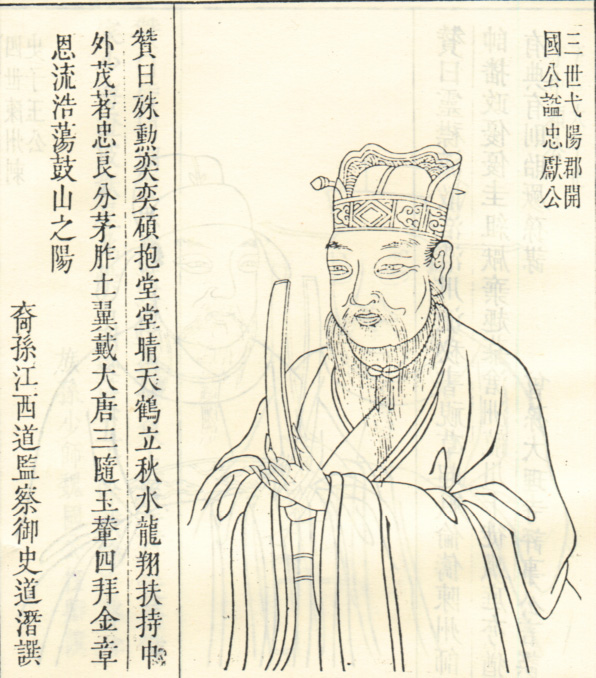 三世弋陽郡開
國公謚忠獻公
贊曰殊勲奕奕碩抱堂堂晴天鶴立秋水龍翔扶持中
外茂著忠良分茅胙土翼戴大唐三隨玉輦四拜金章
恩流浩蕩鼓山之陽
裔孫江西道監察御史道潛譔